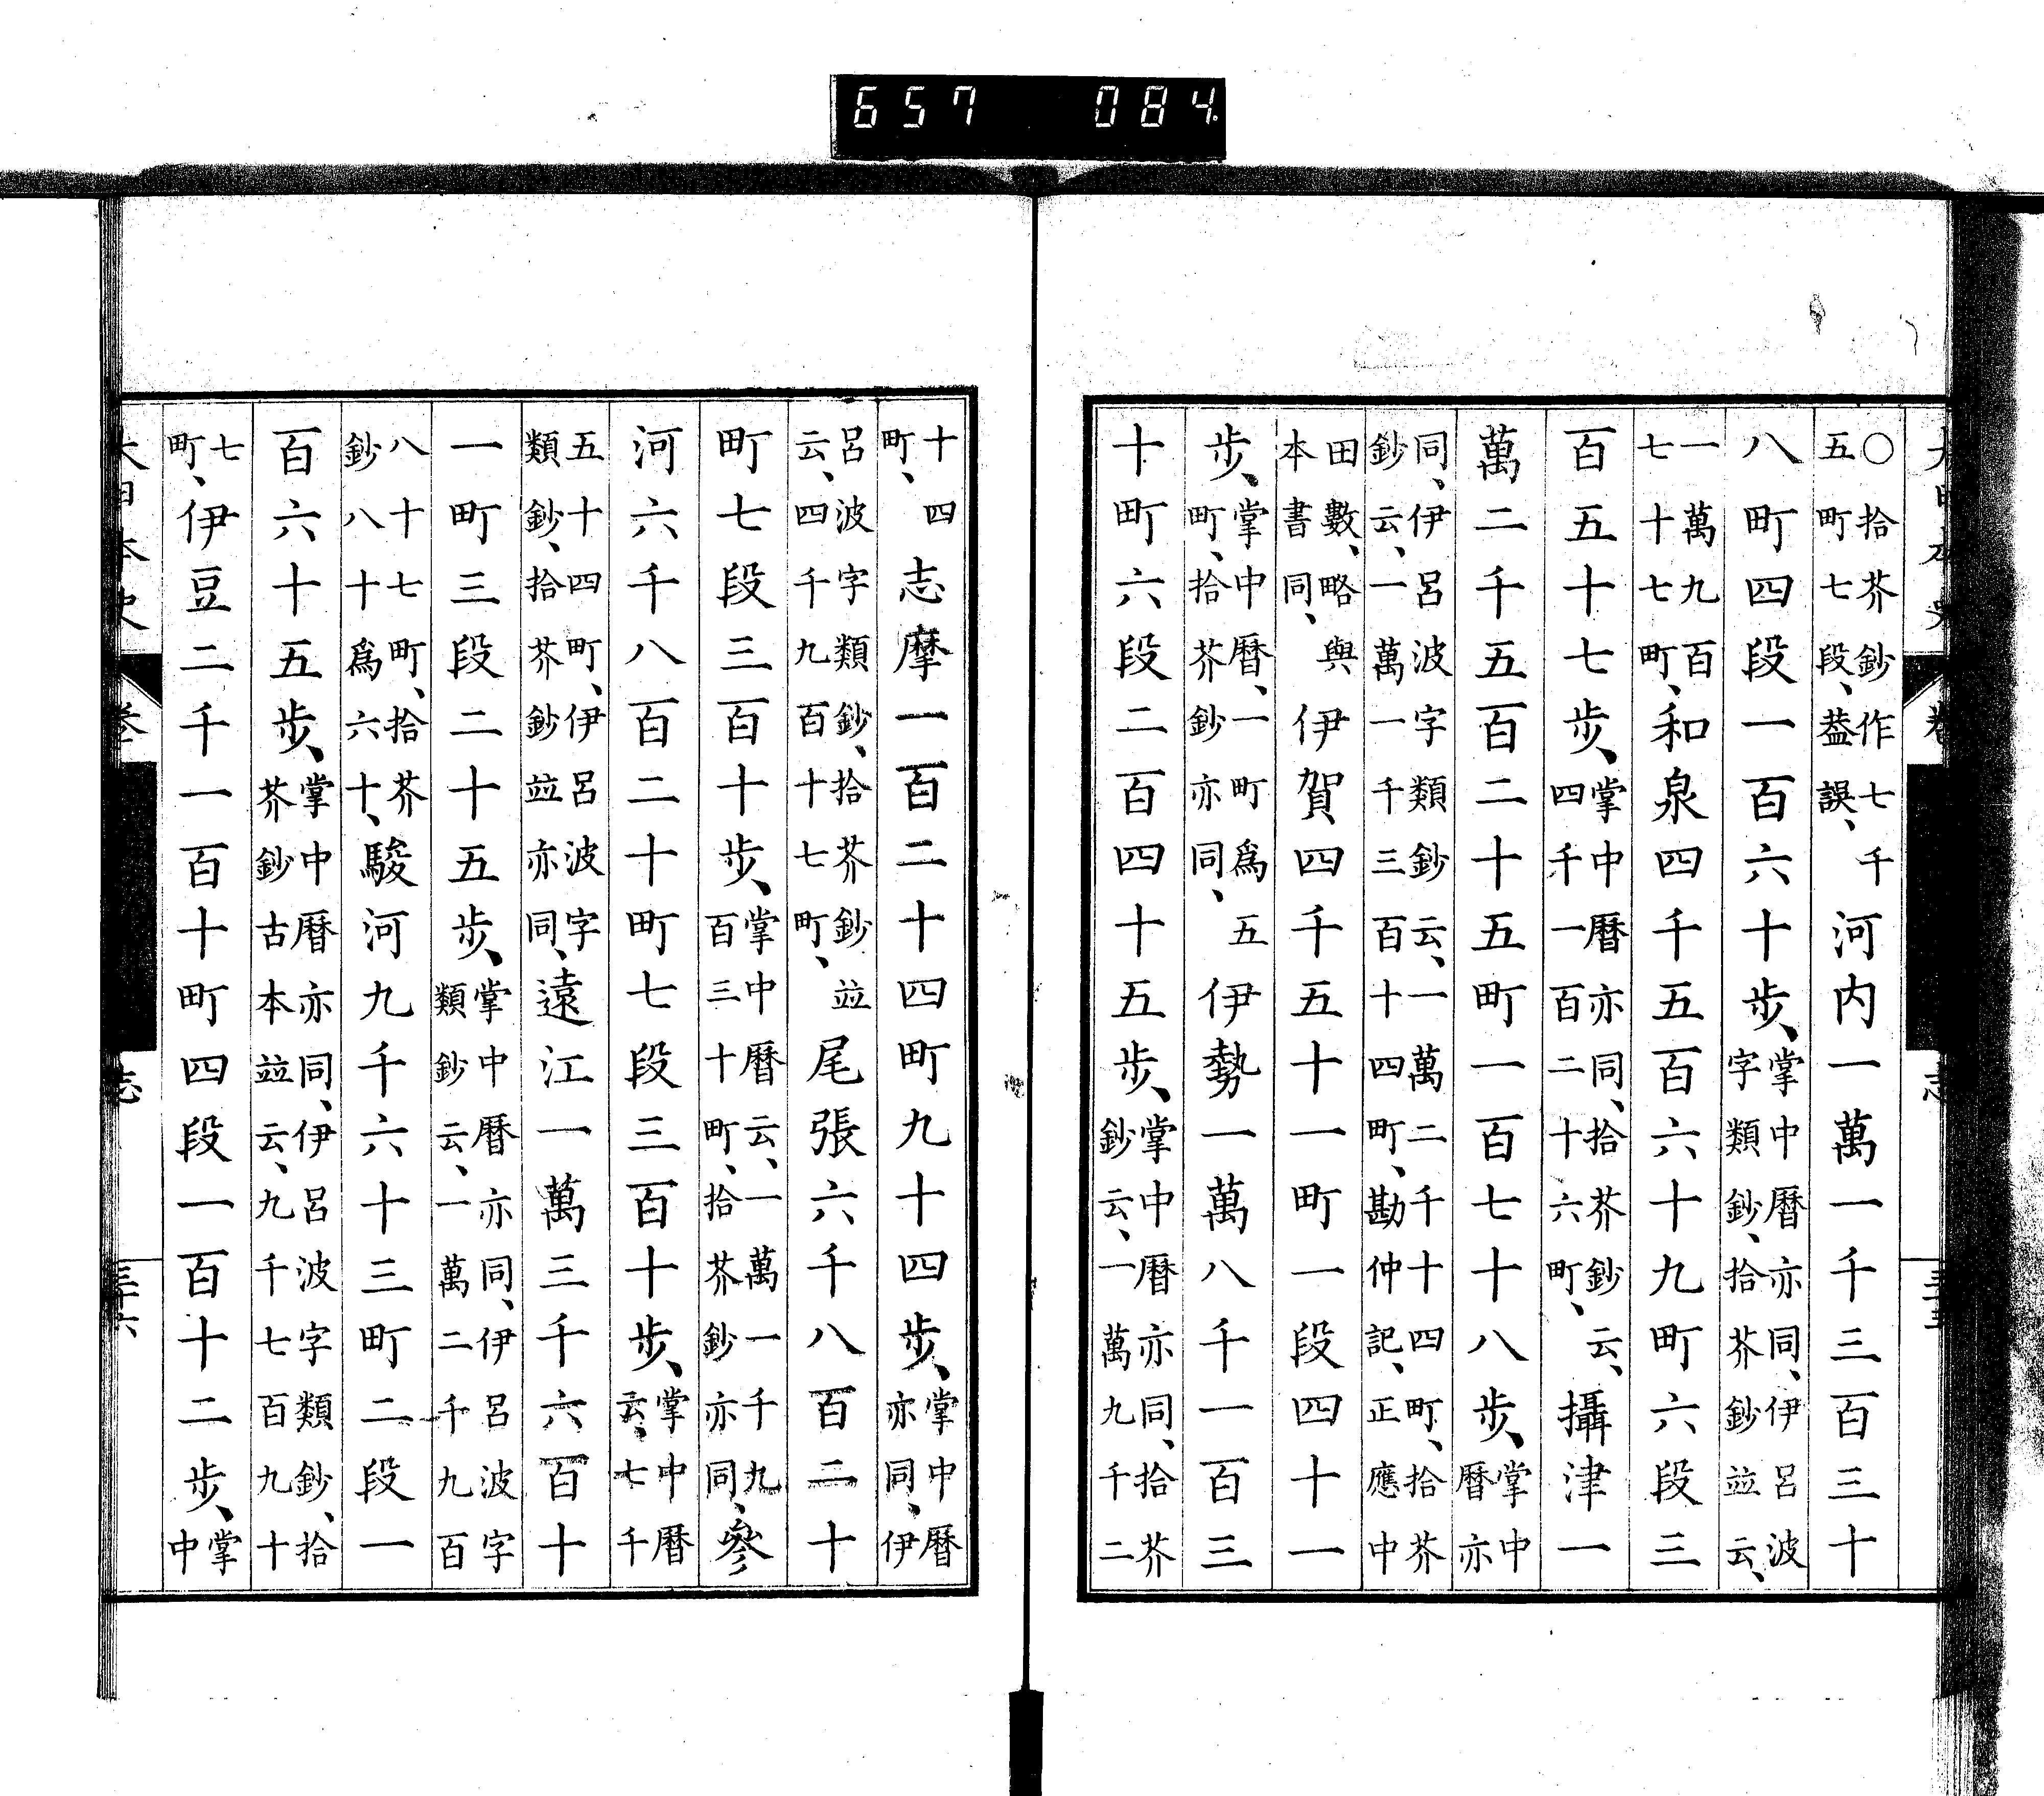 657 084
大日本史 卷 志 三十五
○拾芥鈔作七千五町七段、蓋誤、河内一萬一千三百三十
八町四段一百六十步、掌中曆亦同、伊呂波字類鈔、拾芥鈔竝云、
一萬九百七十七町、和泉四千五百六十九町六段三
百五十七步、掌中曆亦同、拾芥鈔云、四千一百二十六町、攝津一
萬二千五百二十五町一百七十八步、掌中曆亦
同、伊呂波字類鈔云、一萬二千十四町、拾芥鈔云、一萬一千三百十四町、勘仲記、正應中
田數、略與本書同、伊賀四千五十一町一段四十一
步、掌中曆、一町爲五町、拾芥鈔亦同、伊勢一萬八千一百三
十町六段二百四十五步、掌中曆亦同、拾芥鈔云、一萬九千二
十四町、志摩一百二十四町九十四步、掌中曆亦同、伊
呂波字類鈔、拾芥鈔竝云、四千九百十七町、尾張六千八百二十
町七段三百十步、掌中曆云、一萬一千九百三十町、拾芥鈔亦同、參
河六千八百二十町七段三百十步、掌中曆云、七千
五十四町、伊呂波字類鈔、拾芥鈔竝亦同、遠江一萬三千六百十
一町三段二十五步、掌中曆亦同、伊呂波字類鈔云、一萬二千九百
八十七町、拾芥鈔八十爲六十、駿河九千六十三町二段一
百六十五步、掌中曆亦同、伊呂波字類鈔、拾芥鈔古本竝云、九千七百九十
七町、伊豆二千一百十町四段一百十二步、掌中
大日本史 卷 志 三十六